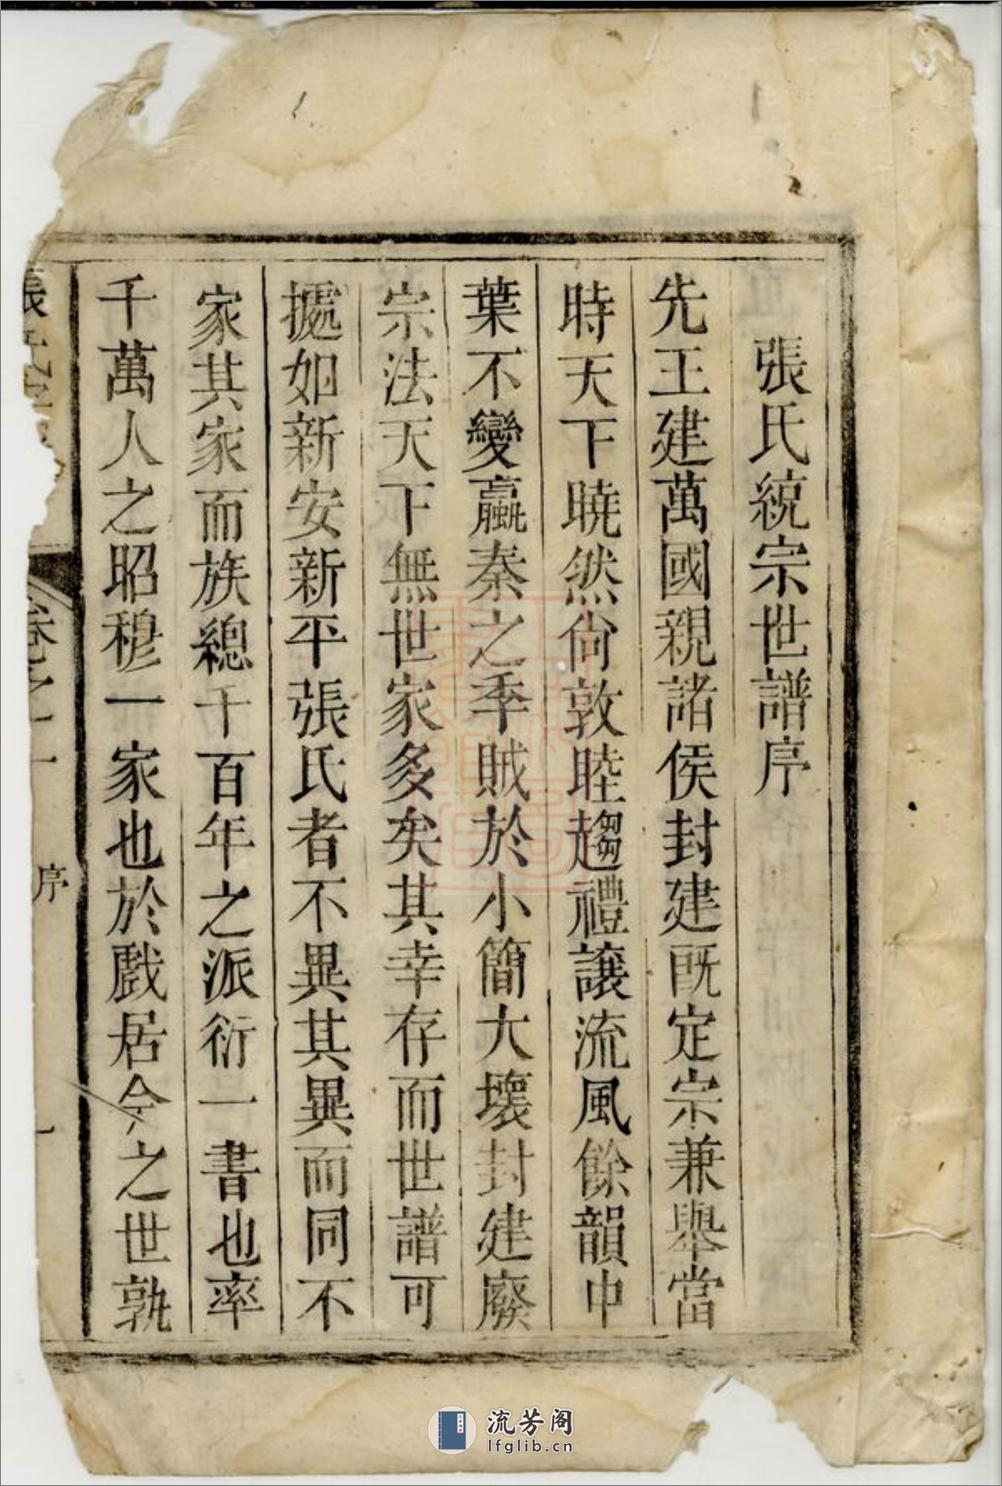 張氏統宗世譜序
先王建萬國親諸侯封建既定宗兼舉當
時天下曉然尙敦睦趨禮讓流風餘韻中
葉不變嬴秦之季賊於小簡大壞封建廢
宗法天下無世家多矣其幸存而世譜可
據如新安新平張氏者不異其異而同不
家其家而族總千百年之派衍一書也率
千萬人之昭穆一家也於戲居今之世孰
張氏
卷之一
序
一
流芳阁
lfglib.cn